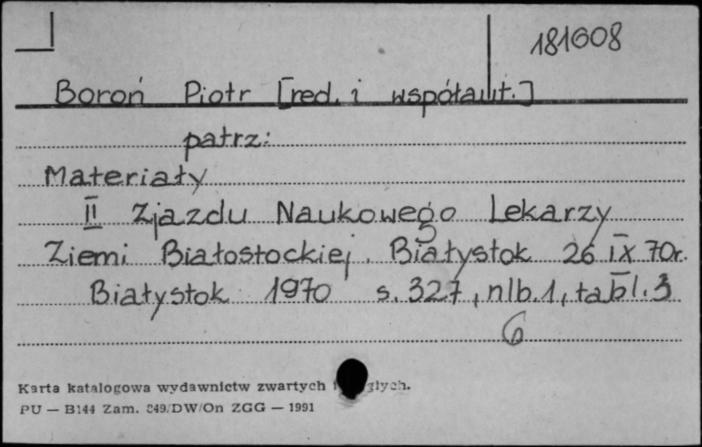 181608
Boroń Piotr [red. i współaut.]
patrz:
Materiały
II Zjazdu Naukowego Lekarzy
Ziemi Białostockiej. Białystok 26 IX 70r.
Białystok 1970 s. 327, nlb. 1, tabl. 3
6
Karta katalogowa wydawnictw zwartych
PU — B144 Zam. 849/DW/On ZGG — 1991